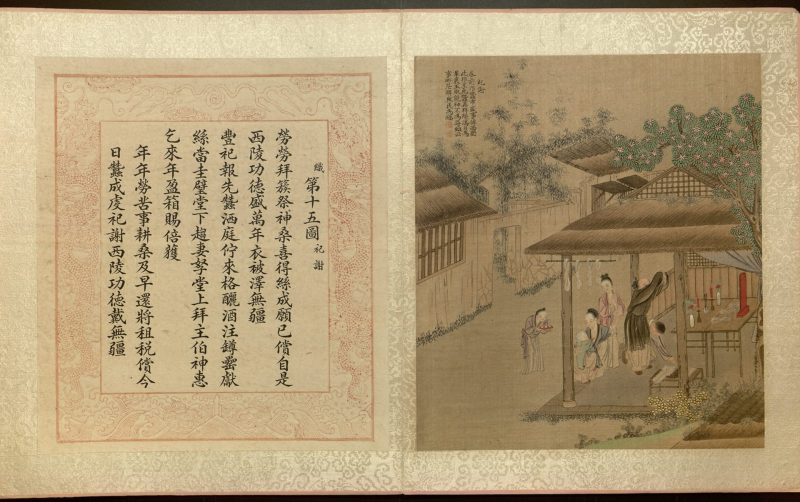 織 第十五圖 祀謝
勞勞拜簇祭神桑喜得絲成願已償自是
西陵功德盛萬年衣被澤無疆
豐祀報先蠶洒庭佇來格釃酒注罇罍獻
絲當圭璧堂下趨妻孥堂上拜主伯神惠
乞來年盈箱賜倍穫
年年勞苦事耕桑及早還將租稅償今
日蠶成虔祀謝西陵功德戴無疆
祀謝